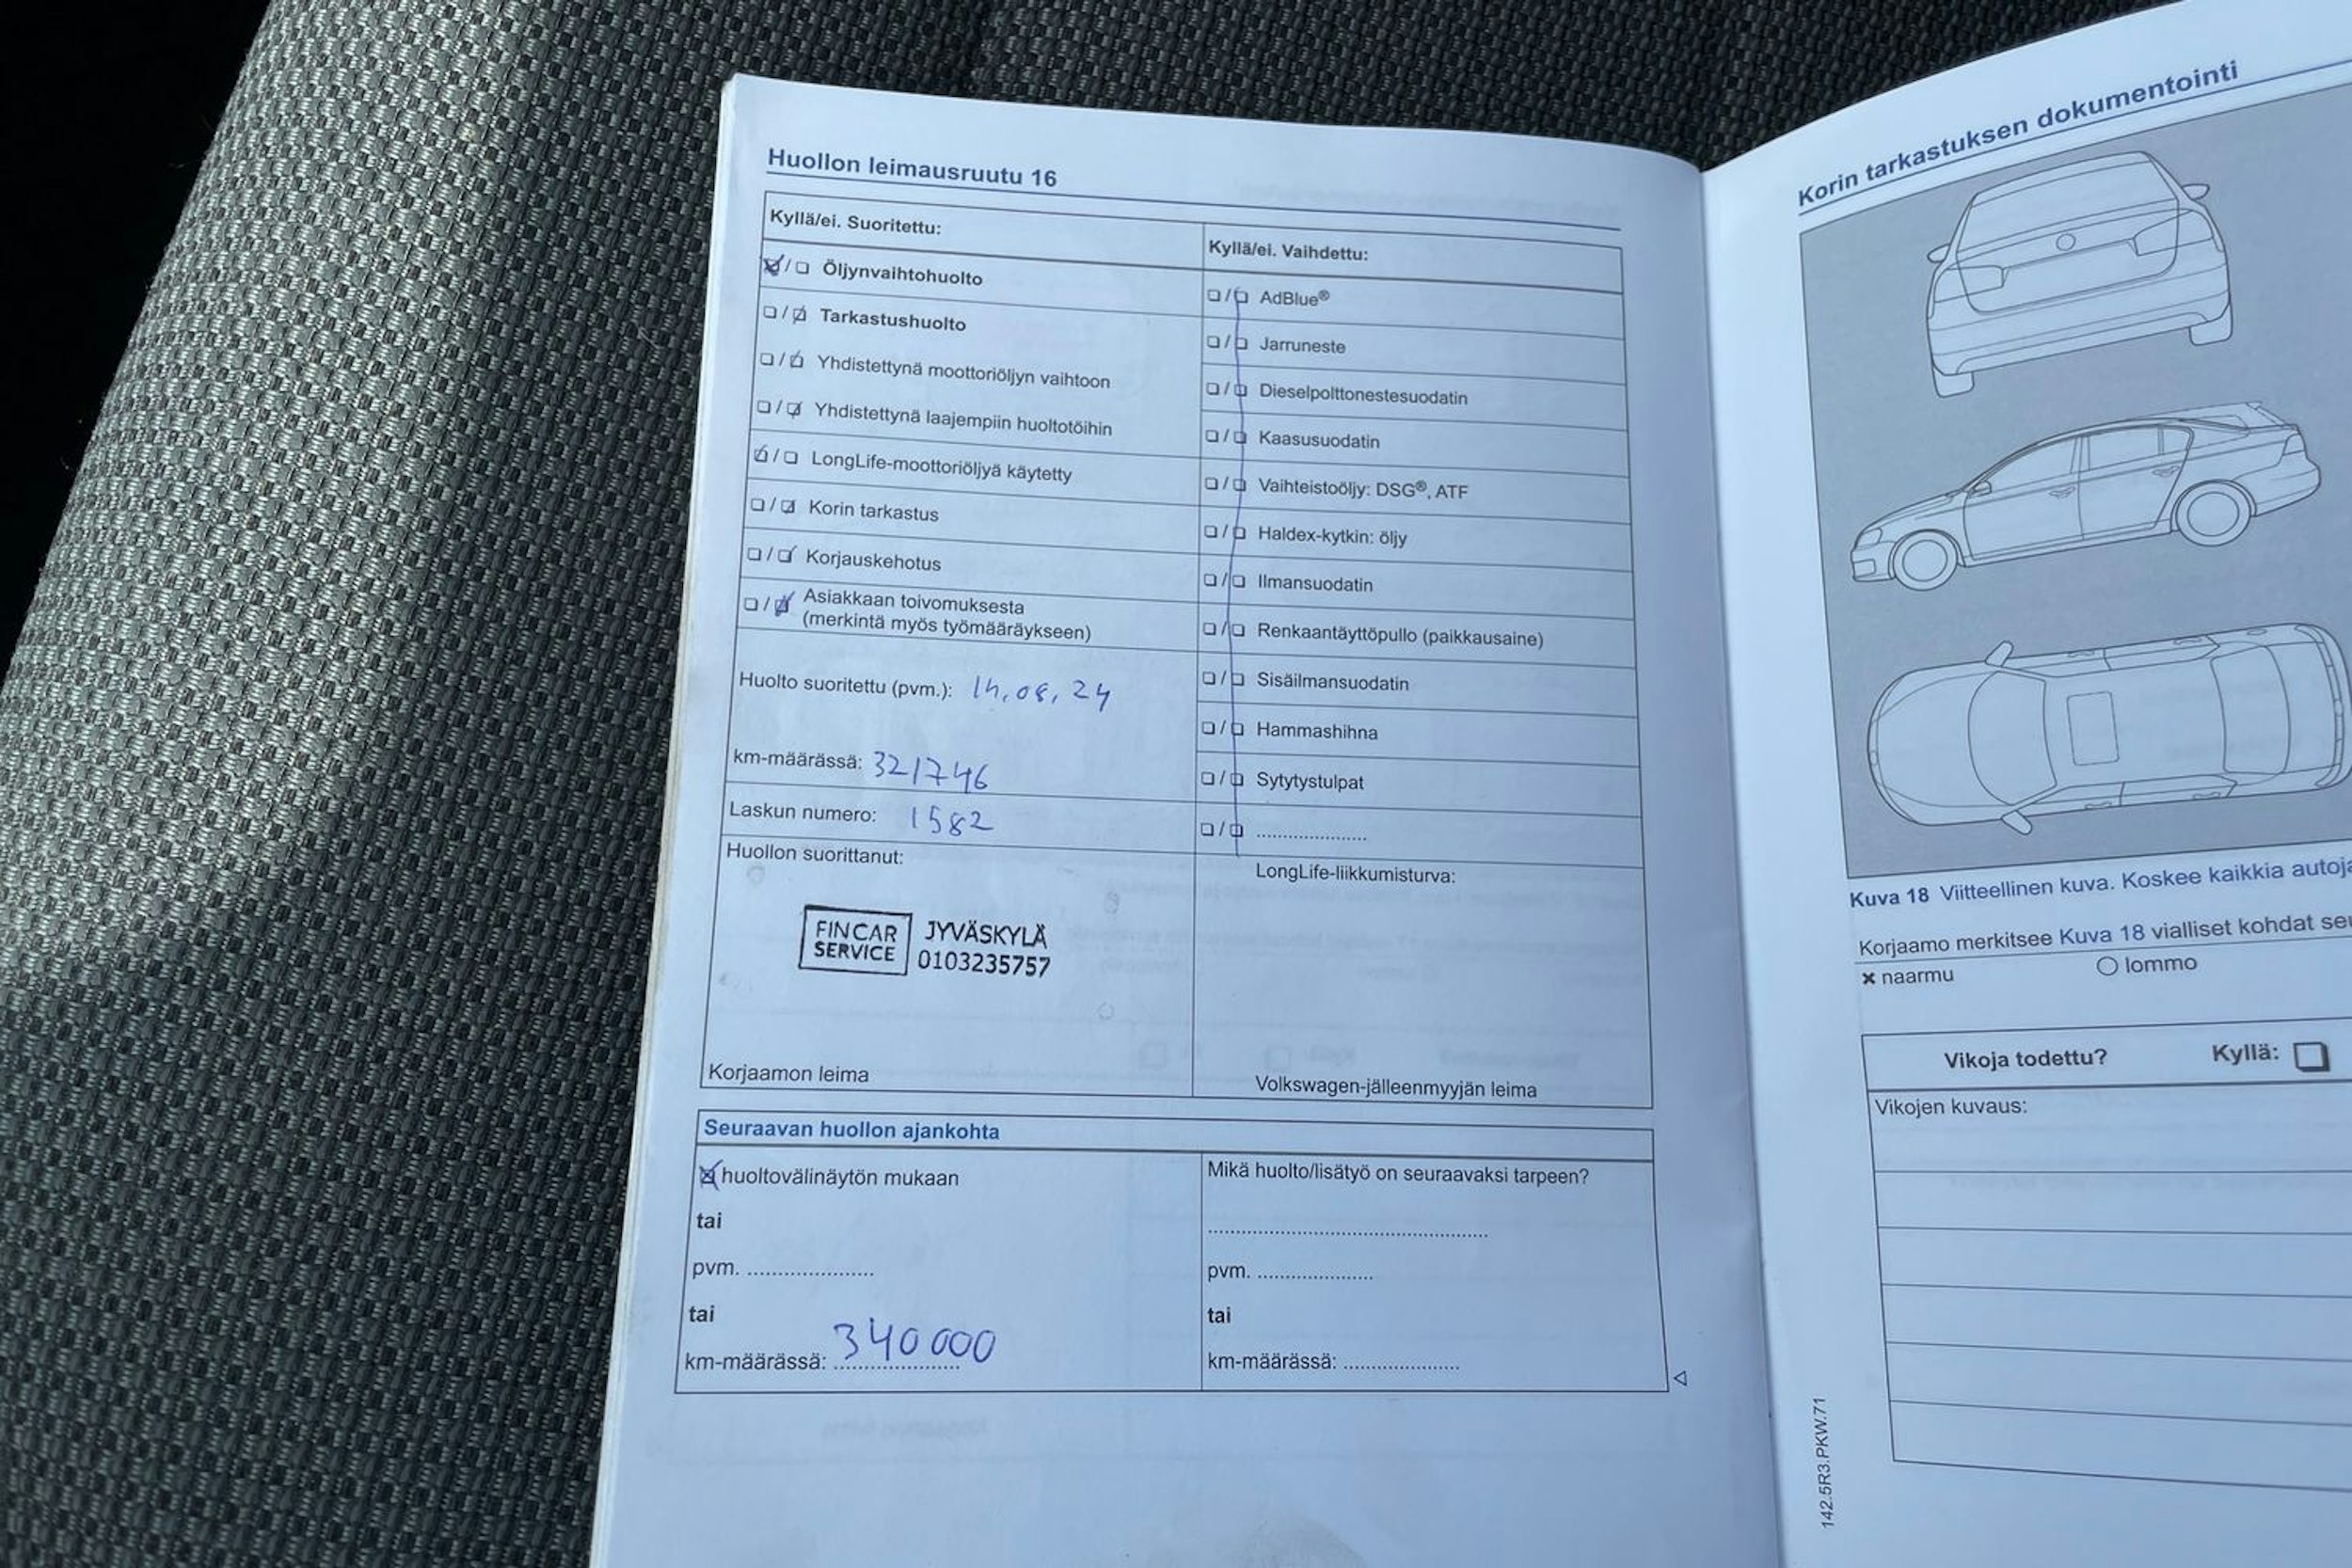 Huollon leimausruutu 16
Kyllä/ei. Suoritettu:
Öljynvaihtohuolto
Tarkastushuolto
Yhdistettynä moottoriöljyn vaihtoon
Yhdistettynä laajempiin huoltotöihin
LongLife-moottoriöljyä käytetty
Korin tarkastus
Korjauskehotus
Asiakkaan toivomuksesta
(merkintä myös työmääräykseen)
Huolto suoritettu (pvm.): 14.08.24
km-määrässä: 321746
Laskun numero: 1582
Huollon suorittanut:
FINCAR SERVICE
JYVÄSKYLÄ
0103235757
Korjaamon leima
Kyllä/ei. Vaihdettu:
AdBlue®
Jarruneste
Dieselpolttonestesuodatin
Kaasusuodatin
Vaihteistoöljy: DSG®, ATF
Haldex-kytkin: öljy
Ilmansuodatin
Renkaantäyttöpullo (paikkausaine)
Sisäilmansuodatin
Hammashihna
Sytytystulpat
LongLife-liikkumisturva:
Volkswagen-jälleenmyyjän leima
Seuraavan huollon ajankohta
huoltovälinäytön mukaan
tai
pvm. ....................
tai
km-määrässä: 340 000
Mikä huolto/lisätyö on seuraavaksi tarpeen?
pvm. ....................
tai
km-määrässä: ....................
Korin tarkastuksen dokumentointi
Kuva 18 Viitteellinen kuva. Koskee kaikkia
Korjaamo merkitsee Kuva 18 vialliset kohdat
x naarmu
○ lommo
Vikoja todettu? Kyllä:
Vikojen kuvaus:
142.5R3.PKW.71